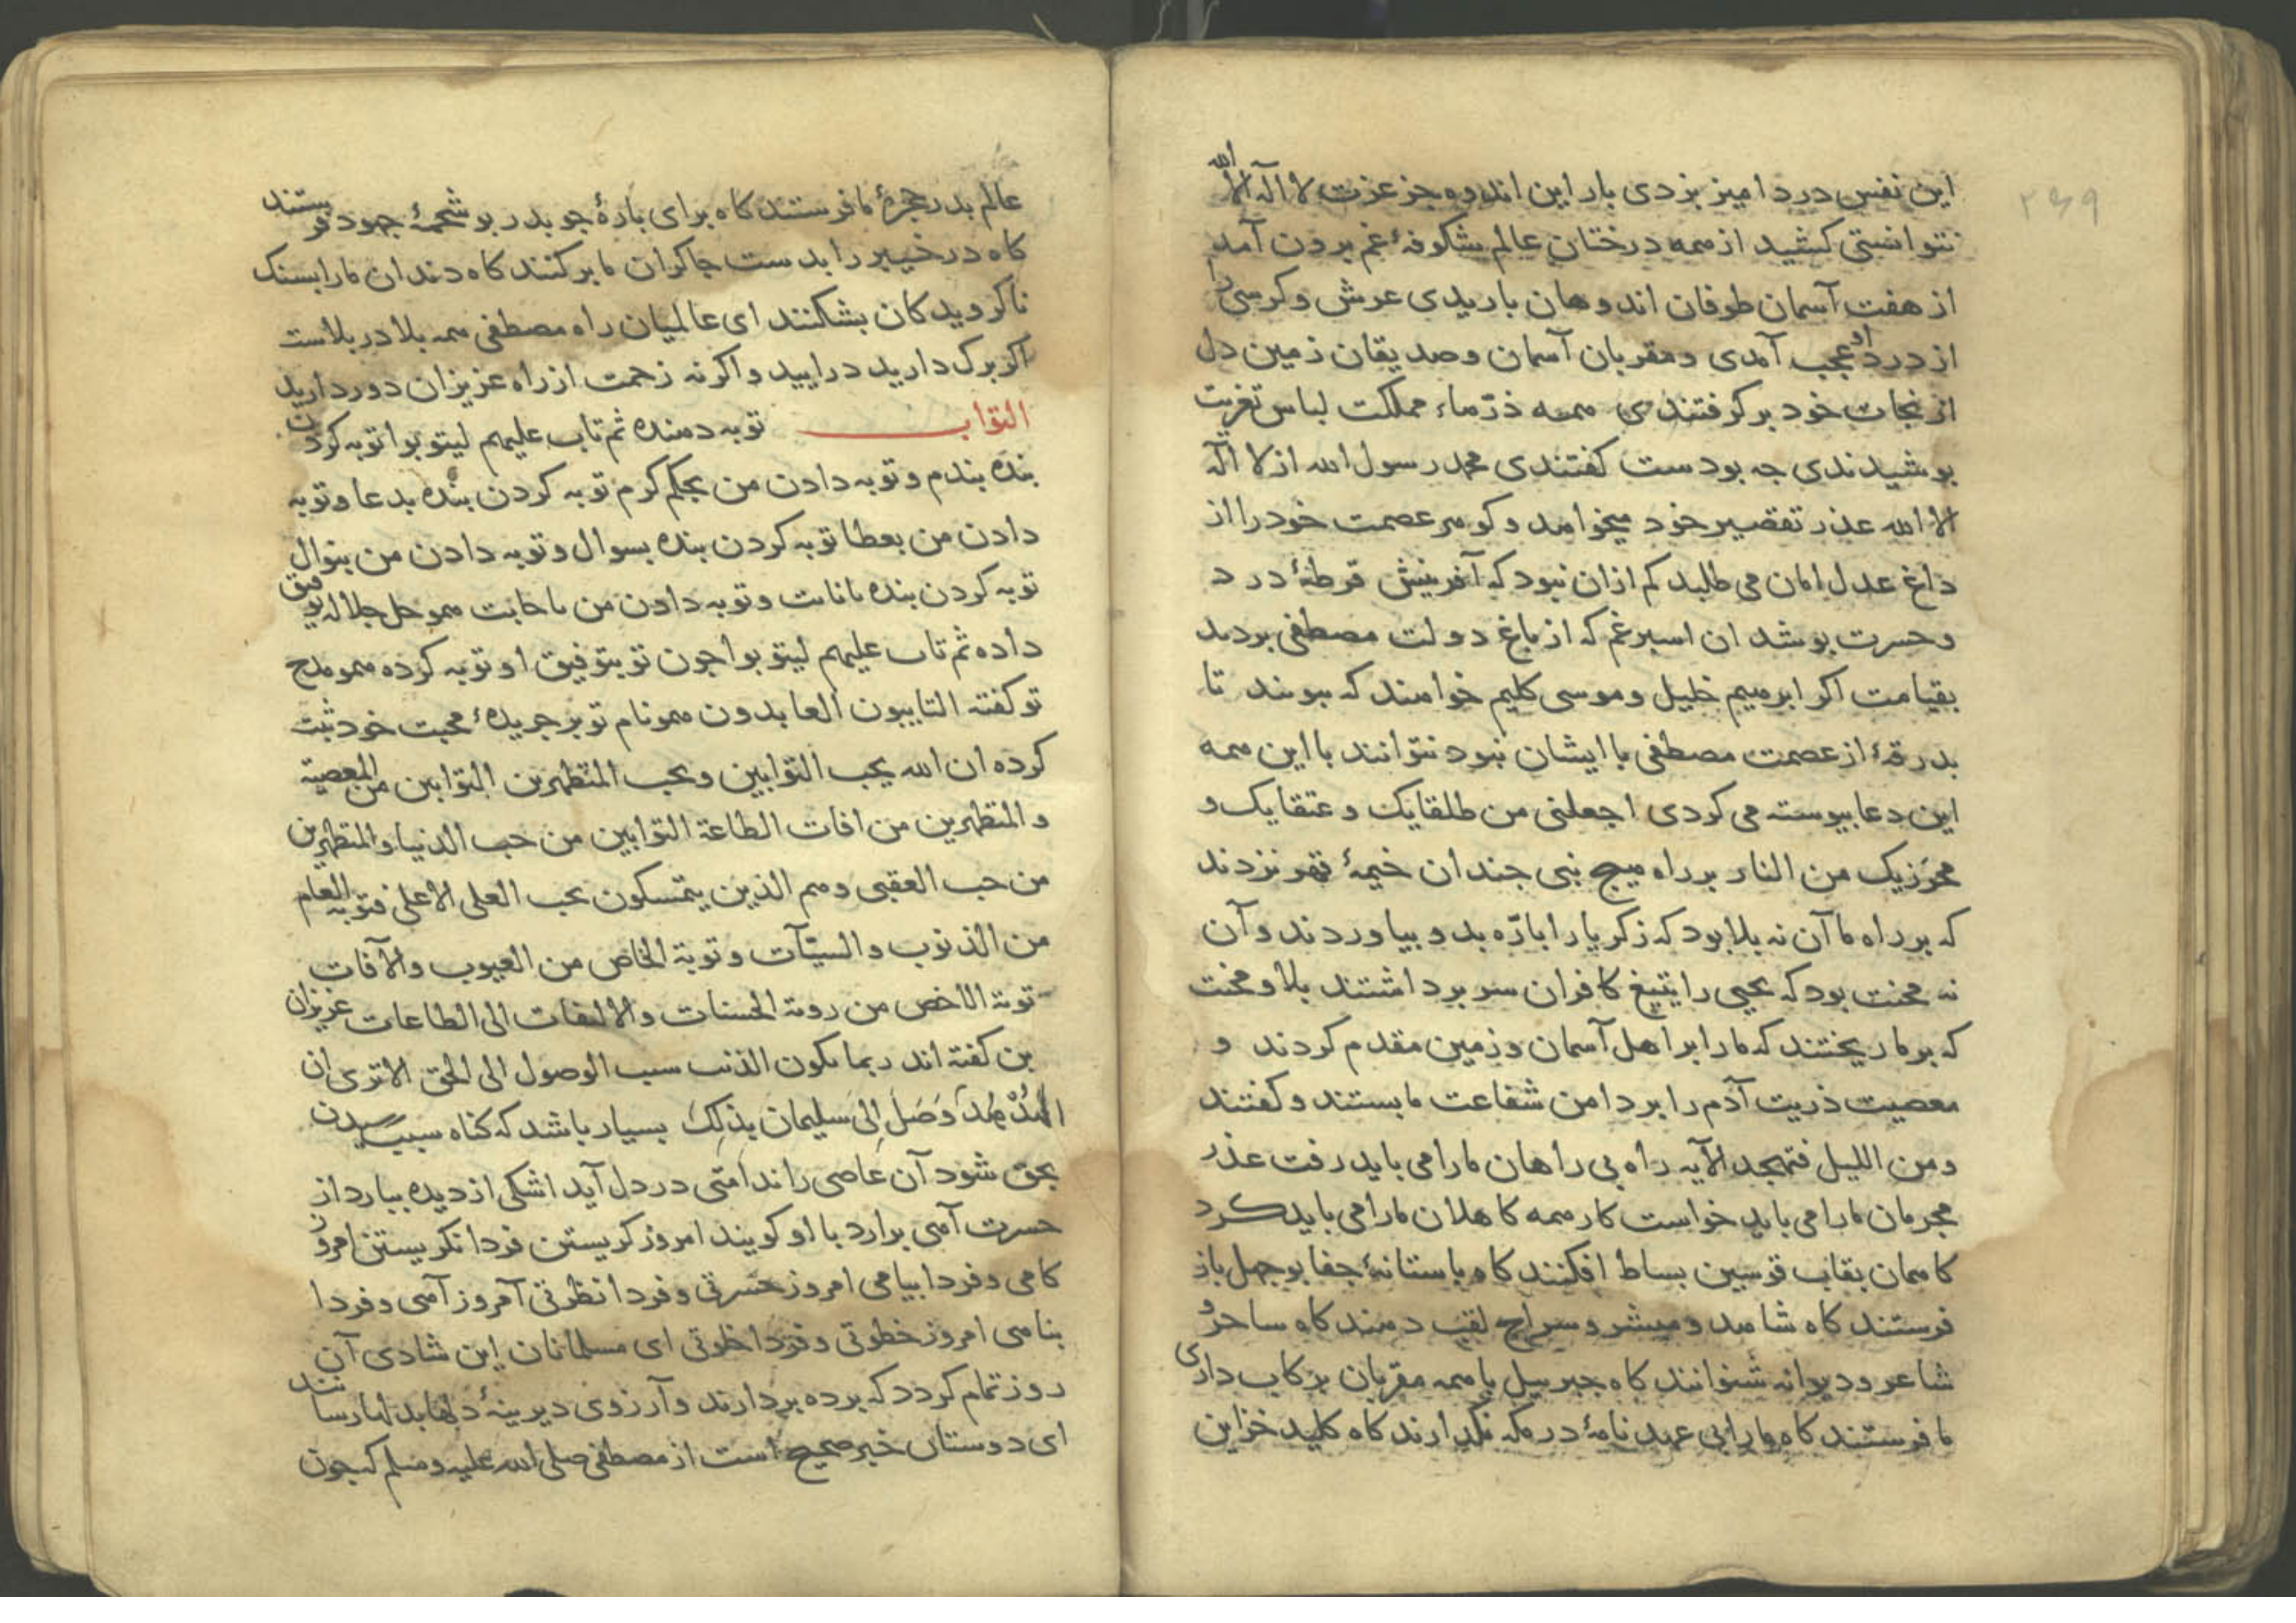 ۲۶۹
این نفس درد امیز بزدی بار این اندوه جز عزت لا اله الا الله
نتوانستی کشید از همه درختان عالم شکوفهٔ غم برون آمد
از هفت آسمان طوفان اندوهان باریدی عرش و کرسی را
از درد او عجب آمدی و مقربان آسمان و صدیقان زمین دل
از نجات خود برکرفتندی همه ذرّهاء مملکت لباس تعزیت
بوشیدندی جه بودست کفتندی محمد رسول الله از لا اله
الا الله عذر تقصیر خود میخواهد و کوهر عصمت خود را از
داغ عدل امان می طلبد کم ازان نبود که آفرینش قرطهٔ درد
و حسرت بوشد ان اسبرغم که از باغ دولت مصطفی بردند
بقیامت اکر ابرهیم خلیل و موسی کلیم خواهند که ببویند تا
بدرقهٔ از عصمت مصطفی با ایشان نبود نتوانند با این همه
این دعا بیوسته می کردی اجعلنی من طلقایک و عتقایک و
محرزیک من النار بر راه هیج نبی جندان خیمهٔ قهر نزدند
که بر راه ما آن نه بلا بود که زکریا را باره بدو بیاوردند و آن
نه محنت بود که یحیی را بتیغ کافران سر برداشتند بلا و محنت
که بر ما ریختند که ما را بر اهل آسمان و زمین مقدم کردند و
معصیت ذریت آدم را بر دامن شفاعت ما بستند و کفتند
و من اللیل فتهجد الآیه راه بی راهان ما را می باید رفت عذر
مجرمان ما را می باید خواست کار همه کاهلان ما را می باید کرد
کاهمان بقاب قوسین بساط افکنند کاه باستانهٔ جفا بوجهل باز
فرستند کاه شاهد و مبشر و سراج لقب دهند کاه ساحر و
شاعر و دیوانه شنوانند کاه جبرییل با همه مقربان برکاب داری
ما فرستند کاه ما را بی عهد نامهٔ در مکه نکدارند کاه کلید خزاین
عالم بدر حجرهٔ ما فرستند کاه برای بارهٔ جو بدر بو شحمهٔ جهود فرستند
کاه در خیبر را بدست جاکران ما برکنند کاه دندان ما را بسنک
ناکرویدکان بشکنند ای عالمیان راه مصطفی همه بلا در بلاست
اکر برک دارید درایید و اکر نه زحمت از راه عزیزان دور دارید
التواب توبه دهنده ثم تاب علیهم لیتوبوا توبه کردن
بنده بندم و توبه دادن من بحکم کرم توبه کردن بنده بدعا و توبه
دادن من بعطا توبه کردن بنده بسوال و توبه دادن من بنوال
توبه کردن بنده بانابت و توبه دادن من باجابت همو جل جلاله توفیق
داده ثم تاب علیهم لیتوبوا جون تو بتوفیق او توبه کرده همو مدح
تو کفته التایبون العابدون همو نام تو بر جریدهٔ محبت خود ثبت
کرده ان الله یحب التوابین و یحب المتطهرین التوابین من المعصیة
و المتطهرین من افات الطاعة التوابین من حب الدنیا و المتطهرین
من حب العقبی و هم الذین یتمسکون بحب العلی الاعلی فتوبة العام
من الذنوب و السیّآت و توبة الخاص من العیوب و الآفات
توبة الاخص من رویة الحسنات و الالتفات الی الطاعات عزیزان
بن کفته اند ربما یکون الذنب سبب الوصول الی الحق الا تری ان
الهُدْهُدَ وَصَلَ اِلیَ سلیمان بِذلِکَ بسیار باشد که کناه سبب رسیدن
بحق شود آن عاصی را ندامتی در دل آید اشکی از دیده ببارد از
حسرت آهی برارد با او کویند امروز کریستن فردا نکریستن امروز
کاهی و فردا بیاهی امروز حسرتی و فردا نظرتی آمروز آهی و فردا
بناهی امروز خطوتی و فردا خلوتی ای مسلمانان این شادی آن
روز تمام کردد که برده بردارند و آرزوی دیرینهٔ دلها بدلها رسانند
ای دوستان خبر صحیح است از مصطفی صلی الله علیه و سلم که جون